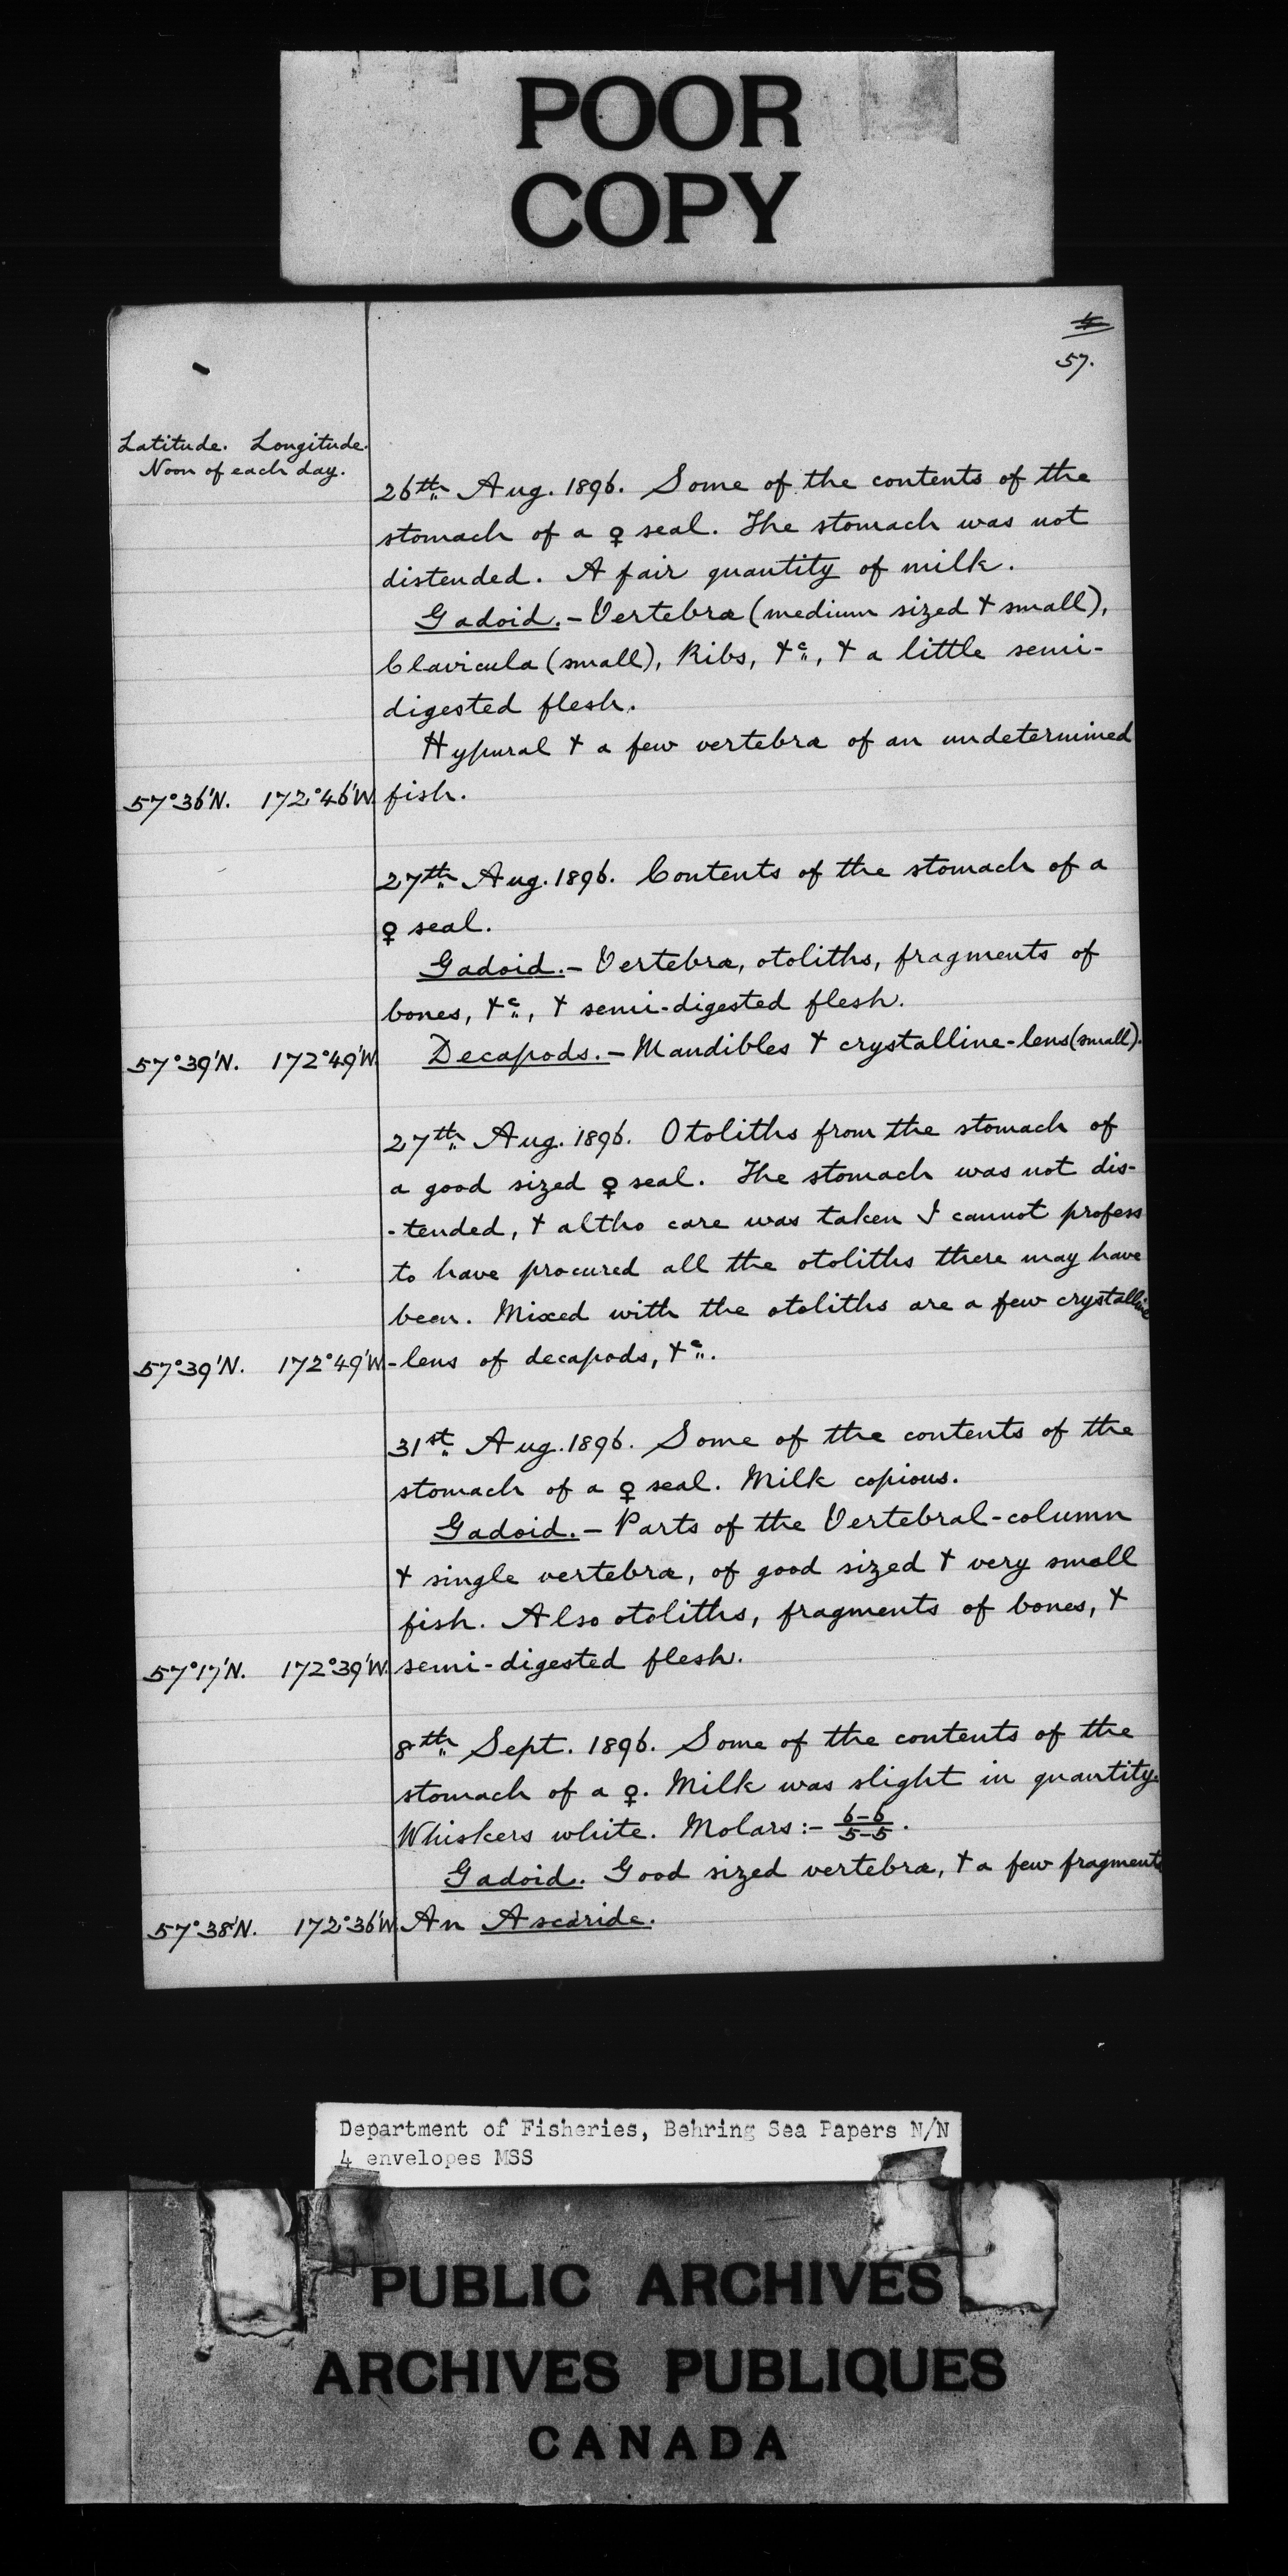 POOR
COPY
57.
Latitude. Longitude.
Noon of each day.
26th Aug. 1896. Some of the contents of the
stomach of a ♀ seal. The stomach was not
distended. A fair quantity of milk.
Gadoid.- Vertebra (medium sized & small),
Clavicula (small), Ribs, &c, & a little semi-
digested flesh.
Hypural & a few vertebra of an undetermined
57°36'N. 172°46'W. fish.
27th Aug. 1896. Contents of the stomach of a
♀ seal.
Gadoid.- Vertebra, otoliths, fragments of
bones, &c, & semi-digested flesh.
57°39'N. 172°49'W. Decapods.- Mandibles & crystalline-lens (small).
27th Aug. 1896. Otoliths from the stomach of
a good sized ♀ seal. The stomach was not dis-
-tended, & altho care was taken I cannot profess
to have procured all the otoliths there may have
been. Mixed with the otoliths are a few crystalline
57°39'N. 172°49'W. -lens of decapods, &c.
31st Aug. 1896. Some of the contents of the
stomach of a ♀ seal. Milk copious.
Gadoid.- Parts of the Vertebral-column
& single vertebra, of good sized & very small
fish. Also otoliths, fragments of bones, &
57°17'N. 172°39'W. semi-digested flesh.
8th Sept. 1896. Some of the contents of the
stomach of a ♀. Milk was slight in quantity.
Whiskers white. Molars:- 6-6/5-5.
Gadoid. Good sized vertebra, & a few fragments
57°38'N. 172°36'W. An Ascaride.
Department of Fisheries, Behring Sea Papers N/N
4 envelopes MSS
PUBLIC ARCHIVES
ARCHIVES PUBLIQUES
CANADA